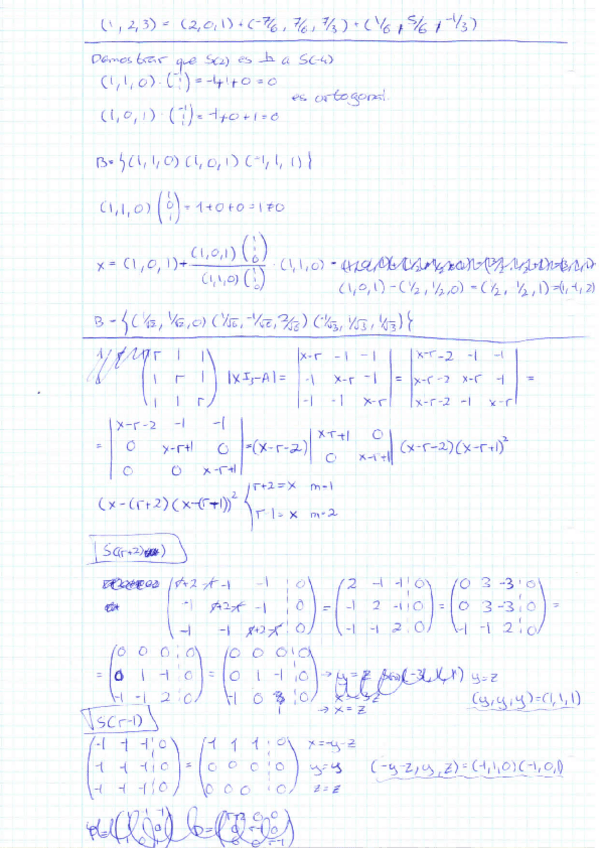 (1, 2, 3) = (2, 0, 1) + (-7/6, 7/6, 7/3) + (1/6, 5/6, -1/3)
Demostrar que S(2) es ⊥ a S(-4)
(1, 1, 0) · (-1 1 1) = -1+1+0 = 0
es ortogonal.
(1, 0, 1) · (-1 1 1) = -1+0+1 = 0
B = {(1, 1, 0) (1, 0, 1) (-1, 1, 1)}
(1, 1, 0) (1 0 1) = 1+0+0 = 1 ≠ 0
x = (1, 0, 1) + (1, 0, 1)(1 1 0) / (1, 1, 0)(1 1 0) · (1, 1, 0) =
(1, 0, 1) - (1/2, 1/2, 0) = (1/2, 1/2, 1) = (1, -1, 2)
B = {(1/√2, 1/√2, 0) (1/√6, -1/√6, 2/√6) (-1/√3, 1/√3, 1/√3)}
(r 1 1 / 1 r 1 / 1 1 r) |x I₃ - A| = |x-r -1 -1 / -1 x-r -1 / -1 -1 x-r| = |x-r-2 -1 -1 / x-r-2 x-r -1 / x-r-2 -1 x-r| =
= |x-r-2 -1 -1 / 0 x-r+1 0 / 0 0 x-r+1| = (x-r-2) |x-r+1 0 / 0 x-r+1| (x-r-2)(x-r+1)²
(x-(r+2)(x-(r-1))² { r+2 = x m=1
r-1 = x m=2
S(r+2)
(r+2-r -1 -1 0 / -1 r+2-r -1 0 / -1 -1 r+2-r 0) = (2 -1 -1 0 / -1 2 -1 0 / -1 -1 2 0) = (0 3 -3 0 / 0 3 -3 0 / -1 -1 2 0) =
= (0 0 0 0 / 0 1 -1 0 / -1 -1 2 0) = (0 0 0 0 / 0 1 -1 0 / -1 0 1 0) → y = z
y = z
→ x = z
(y, y, y) = (1, 1, 1)
S(r-1)
(-1 -1 -1 0 / -1 -1 -1 0 / -1 -1 -1 0) = (1 1 1 0 / 0 0 0 0 / 0 0 0 0) x = -y-z
y = y
z = z
(-y-z, y, z) = (-1, 1, 0) (-1, 0, 1)